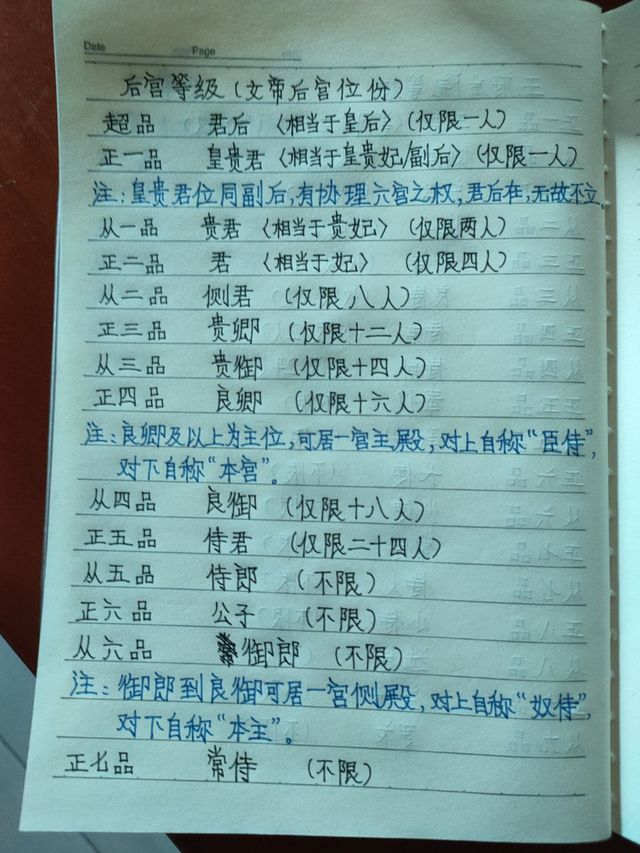 Date Page
后宫等级(文帝后宫位份)
超品 君后〈相当于皇后〉(仅限一人)
正一品 皇贵君〈相当于皇贵妃/副后〉(仅限一人)
注:皇贵君位同副后,有协理六宫之权,君后在,无故不立。
从一品 贵君〈相当于贵妃〉(仅限两人)
正二品 君〈相当于妃〉(仅限四人)
从二品 侧君(仅限八人)
正三品 贵卿(仅限十二人)
从三品 贵御(仅限十四人)
正四品 良卿(仅限十六人)
注:良卿及以上为主位,可居一宫主殿,对上自称“臣侍”,
对下自称“本宫”。
从四品 良御(仅限十八人)
正五品 侍君(仅限二十四人)
从五品 侍郎(不限)
正六品 公子(不限)
从六品 御郎(不限)
注:御郎到良御可居一宫侧殿,对上自称“奴侍”,
对下自称“本主”。
正七品 常侍(不限)